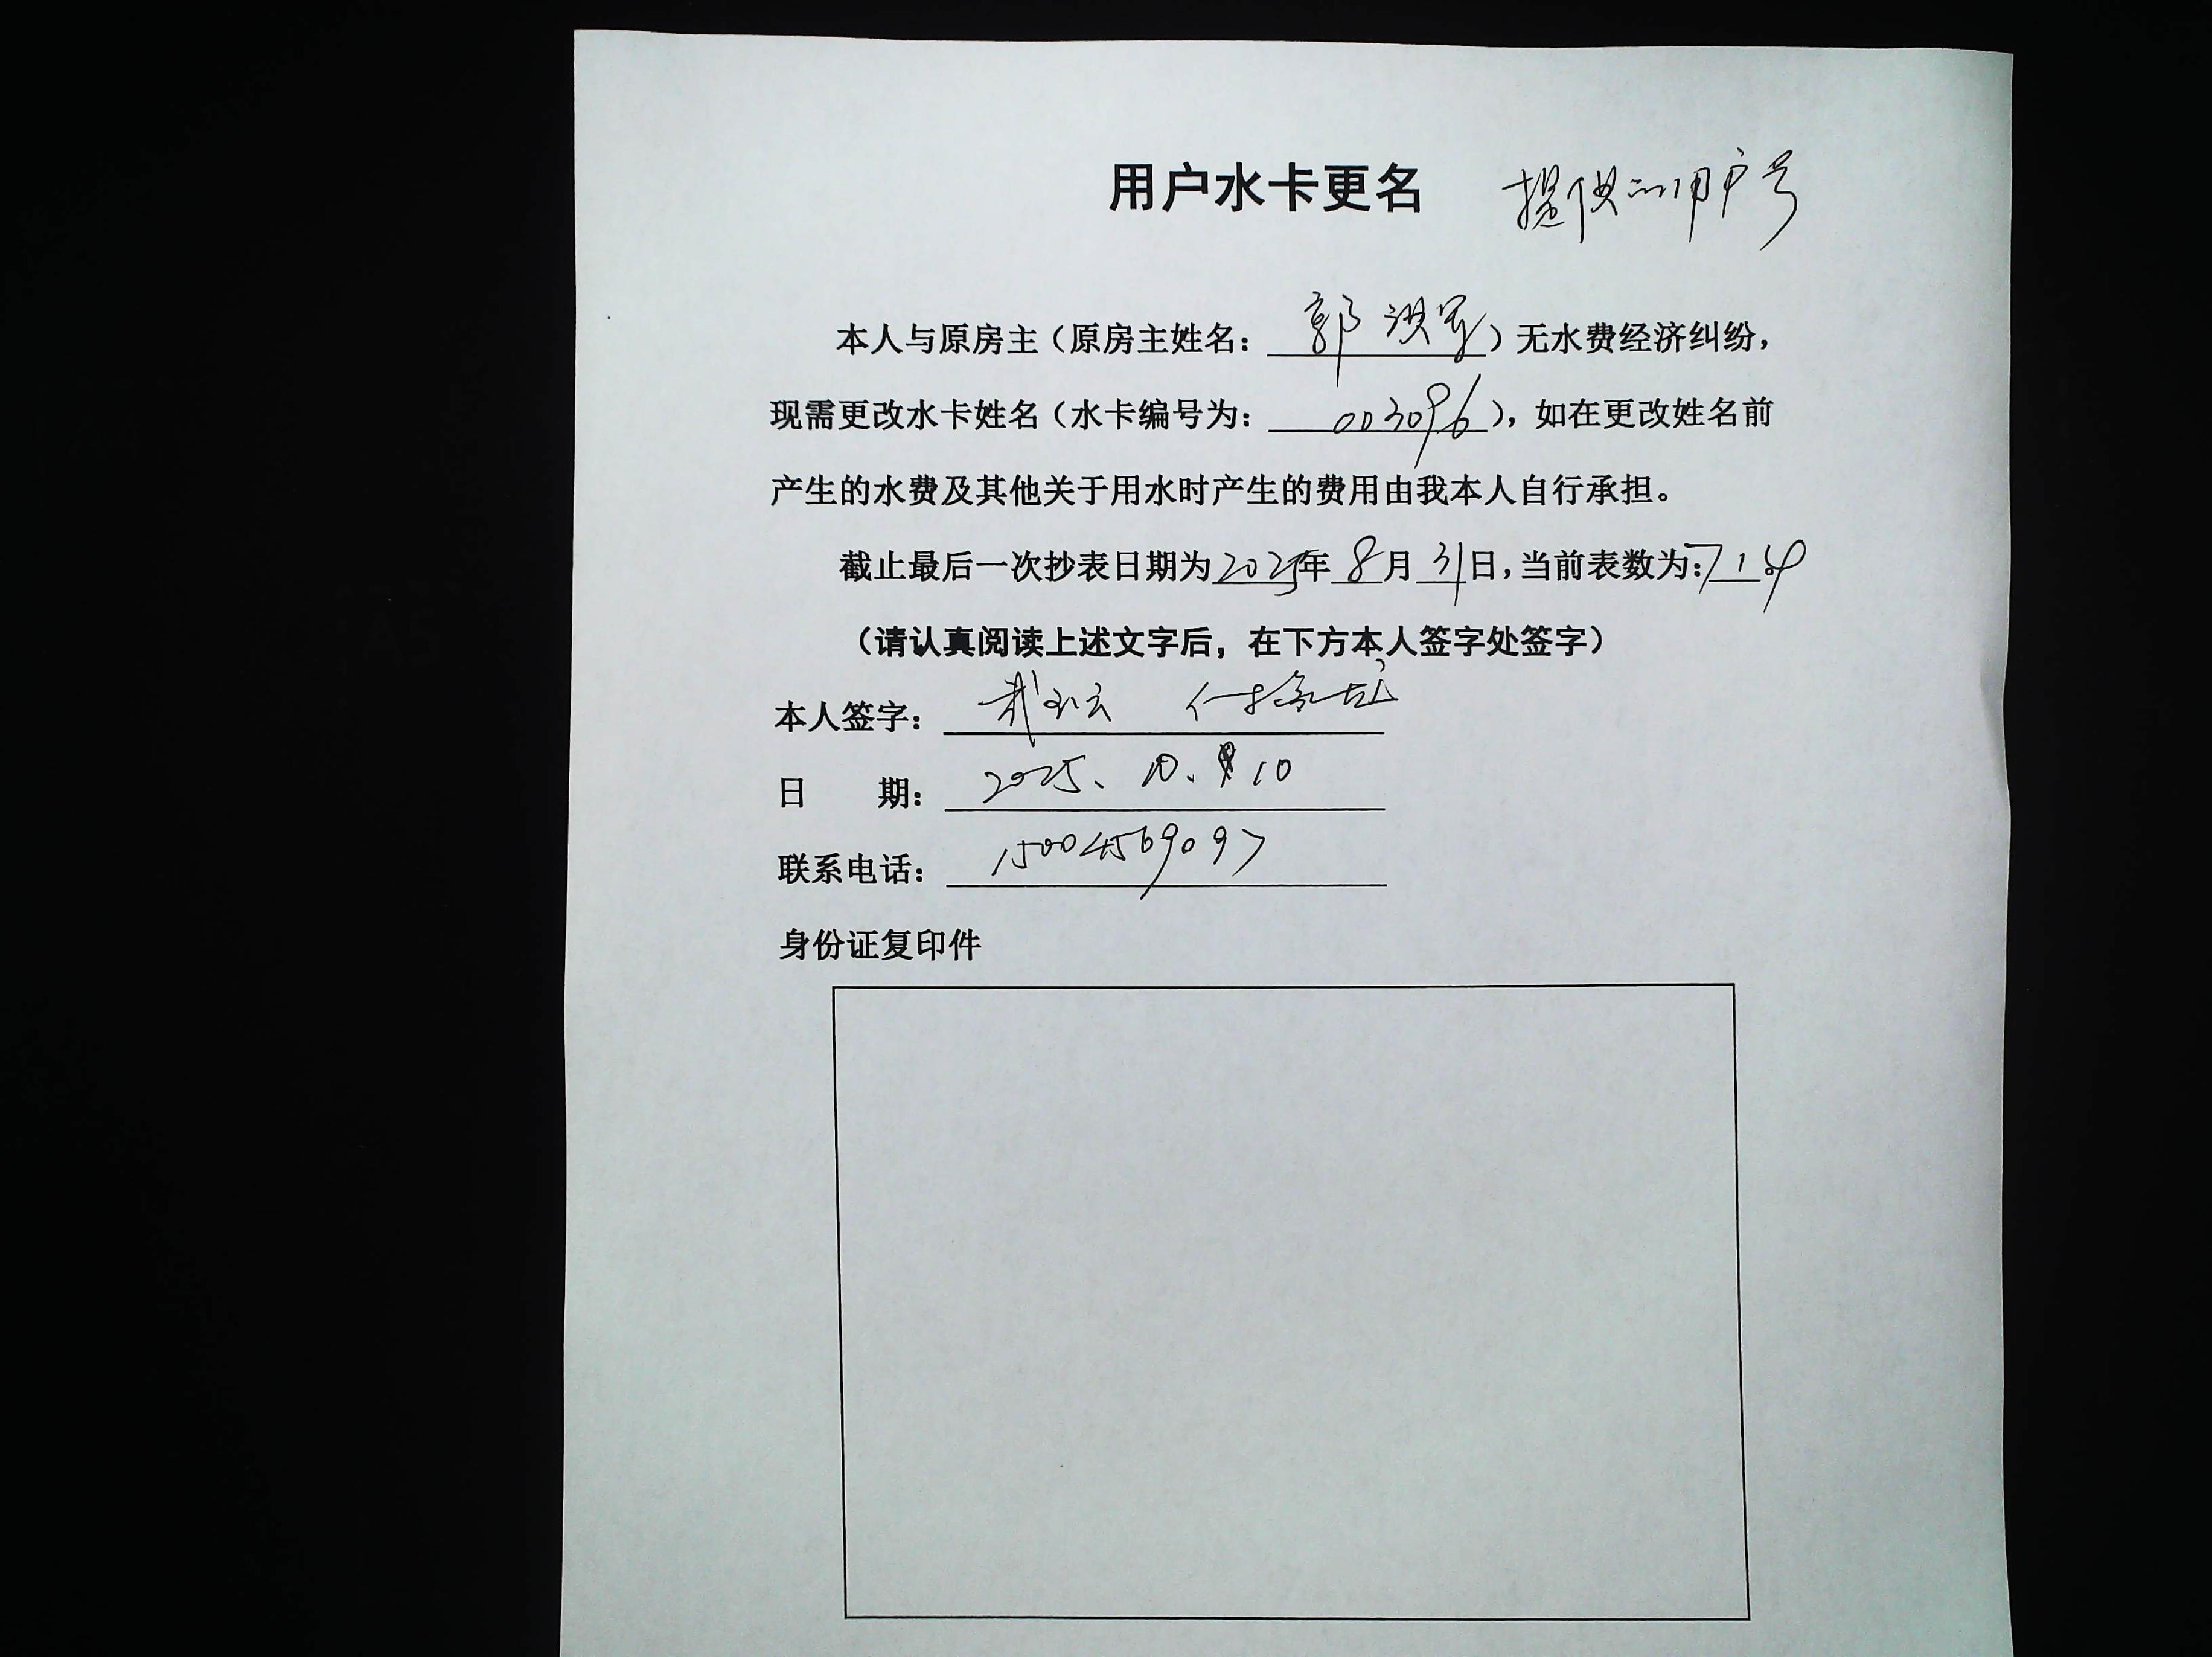 用户水卡更名 提供的用户号
本人与原房主（原房主姓名：郭洪军）无水费经济纠纷，
现需更改水卡姓名（水卡编号为：003096），如在更改姓名前
产生的水费及其他关于用水时产生的费用由我本人自行承担。
截止最后一次抄表日期为2025年8月31日，当前表数为：714
（请认真阅读上述文字后，在下方本人签字处签字）
本人签字：
日 期：2025、10、10
联系电话：15004569097
身份证复印件